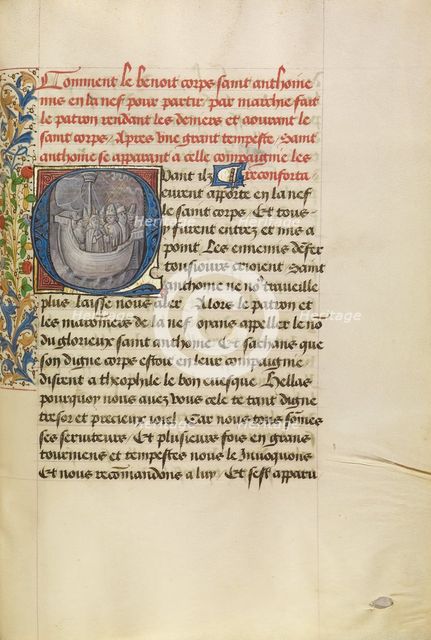 Comment le benoit corps saint anthoine
mis en la nef pour partir par marchie fait
le patron rendant les deniers et aourant le
saint corps. Apres vne grant tempeste. Saint
anthoine se apparant a celle compaignie les
reconforta
Quant ilz
eurent apporte en la nef
le saint corps. Et tous
y furent entrez et mis a
point. Les ennemis denfer
tousiours crioient. Saint
anthoine ne no' traueille
plus laisse nous aler. Alors le patron et
les maronniers de la nef oyans appeller le nō
du glorieux saint anthoine. Et sachans que
son digne corps estoit en leur compaignie
disrent a theophile le bon euesque. Hellas
pourquoy nous auez vous cele te tant digne
tresor et precieux ioiel. Car nous tous sōmes
ses seruiteurs. Et plusieurs fois en grans
tourmens et tempestes nous le Inuoquons
Et nous recōmandons a luy. Et sest apparu
Heritage
Heritage
Heritage
Heritage